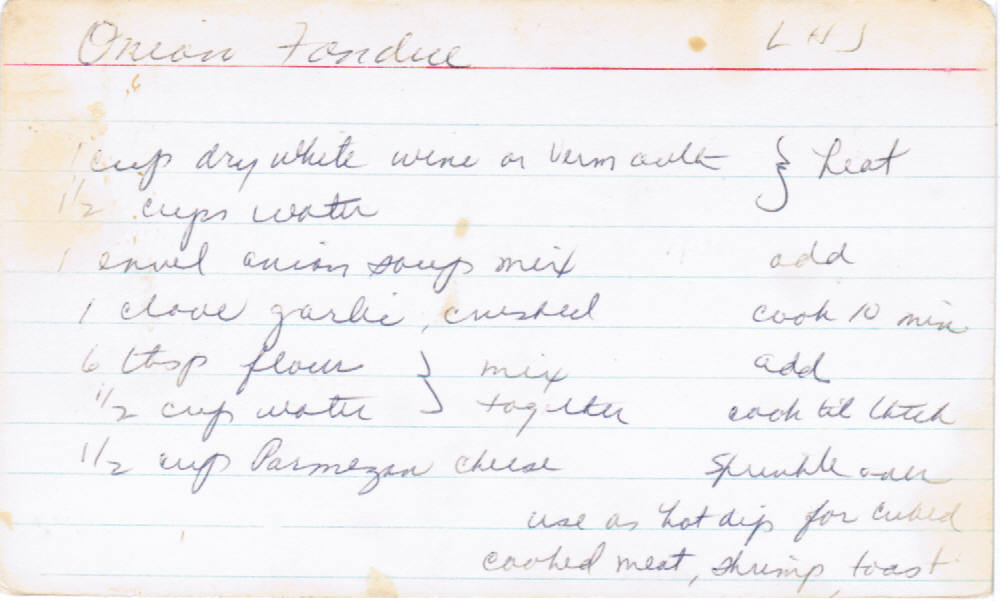 Onion Fondue LHJ
1 cup dry white wine or Vermouth } heat
1 1/2 cups water
1 envel onion soup mix add
1 clove garlic, crushed cook 10 min
6 tbsp flour } mix add
1/2 cup water together cook til thick
1/2 cup Parmezan cheese Sprinkle over
use as hot dip for cubed
cooked meat, shrimp, toast